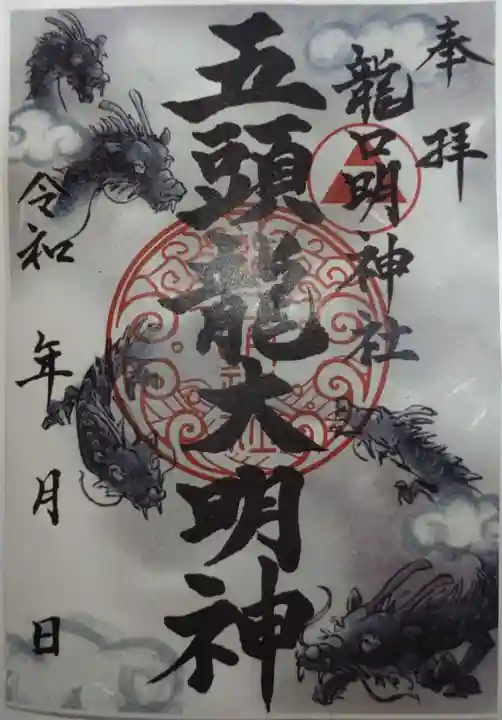 奉拝
龍口明神社
五頭龍大明神
令和 年 月 日